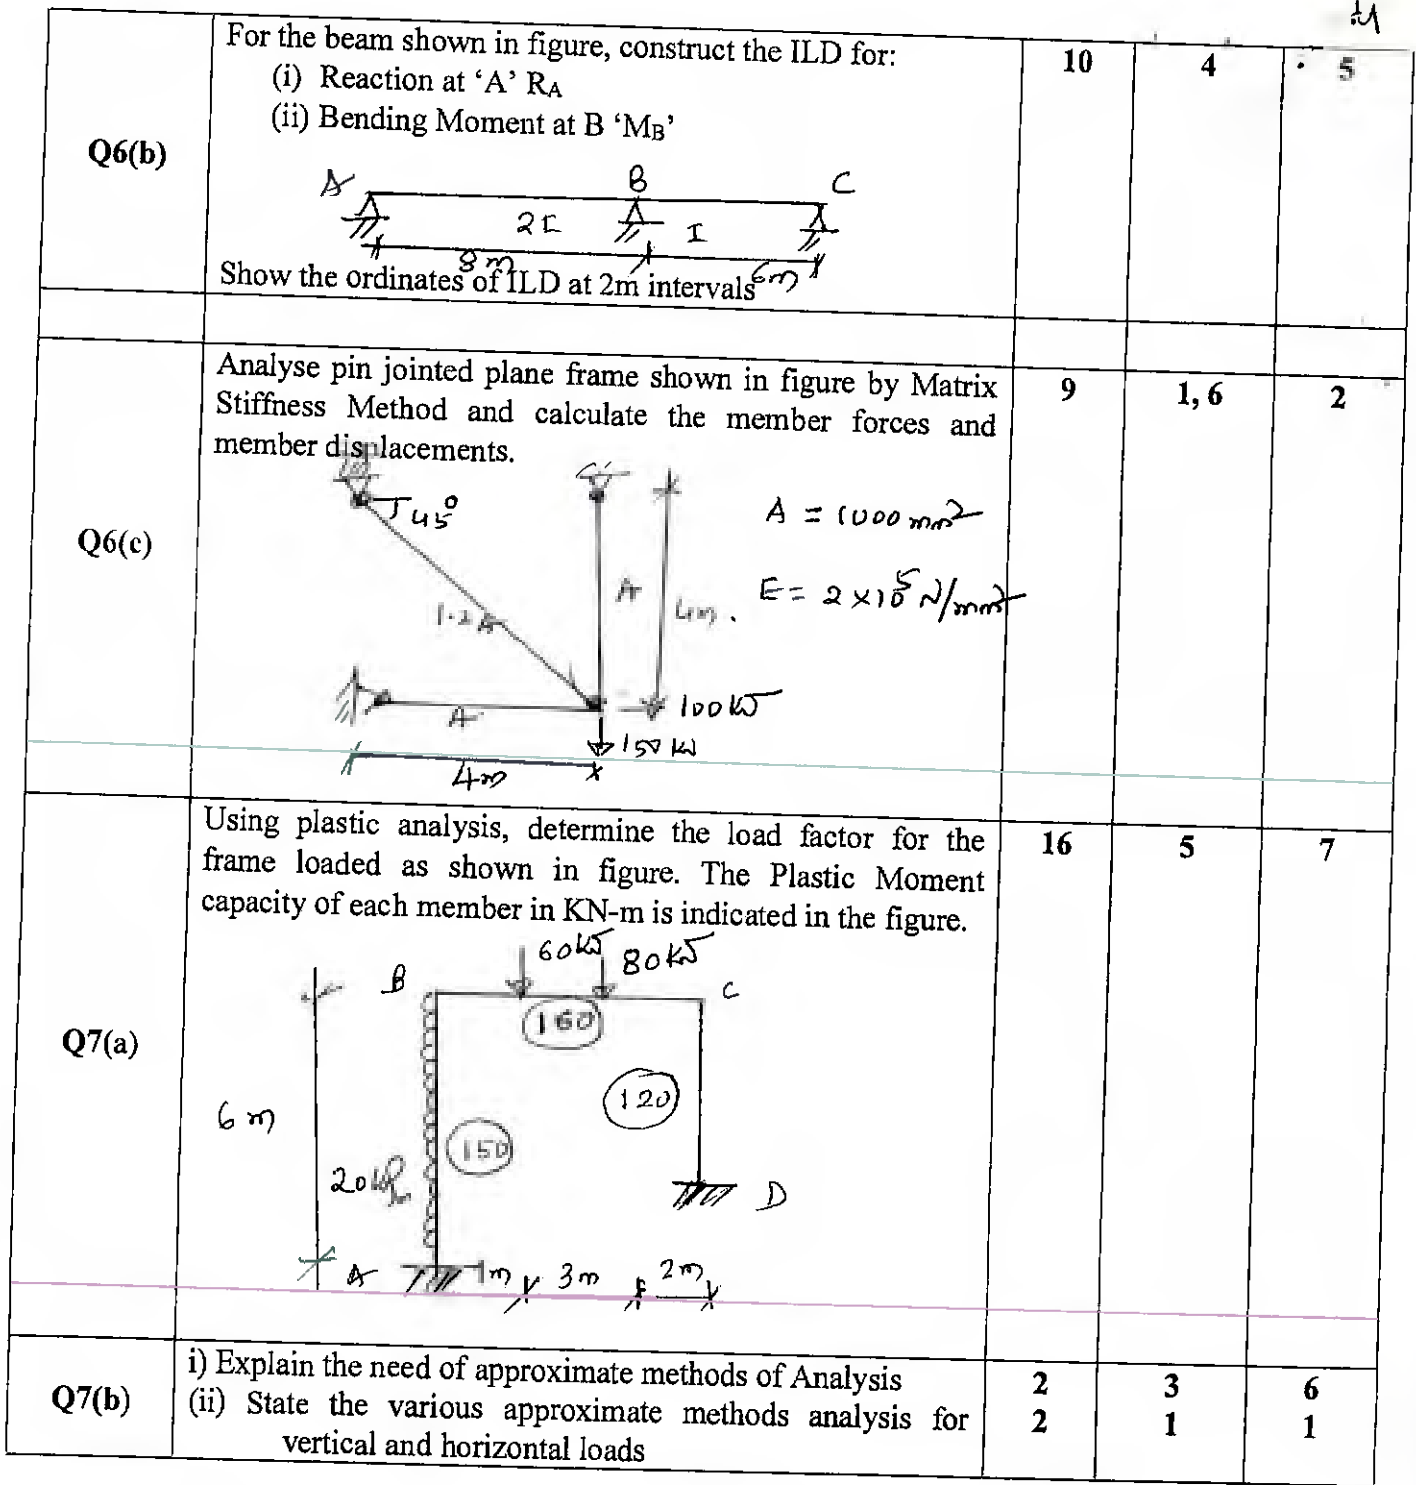 Q6(b)
For the beam shown in figure, construct the ILD for:
(i) Reaction at ‘A’ RA
(ii) Bending Moment at B ‘MB’
10
4
5
A
B
C
2I
I
8m
6m
Show the ordinates of ILD at 2m intervals
Q6(c)
Analyse pin jointed plane frame shown in figure by Matrix
Stiffness Method and calculate the member forces and
member displacements.
9
1, 6
2
45°
A = 1000 mm2
E = 2 x 10^5 N/mm2
A
4m.
1.2A
A
100 kN
150 kN
4m
Q7(a)
Using plastic analysis, determine the load factor for the
frame loaded as shown in figure. The Plastic Moment
capacity of each member in KN-m is indicated in the figure.
16
5
7
60kN
80kN
B
C
160
120
6 m
150
D
A
1m
3m
2m
Q7(b)
i) Explain the need of approximate methods of Analysis
(ii) State the various approximate methods analysis for
vertical and horizontal loads
2
3
6
2
1
1